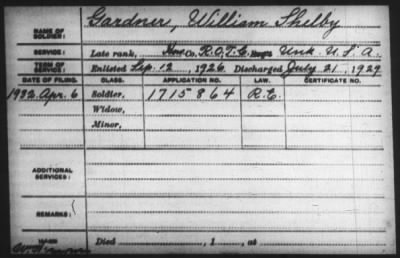 NAME OF SOLDIER: Gardner, William Shelby
SERVICE: Late rank, Co. R.O.T.C. Reg't Unk. U.S.A.
TERM OF SERVICE: Enlisted Sep. 12, 1926, Discharged July 21, 1927
DATE OF FILING. CLASS. APPLICATION NO. LAW. CERTIFICATE NO.
1932 Apr. 6 Soldier, 1715864 R.E.
Widow,
Minor,
ADDITIONAL SERVICES:
REMARKS:
Died , 1 , at